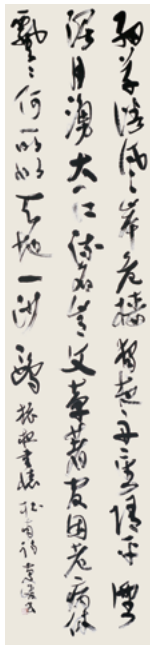 細草微風岸危檣獨夜舟星垂平野
闊月湧大江流名豈文章著官因老病休
飄々何所似天地一沙鷗 旅夜書懷 杜甫詩